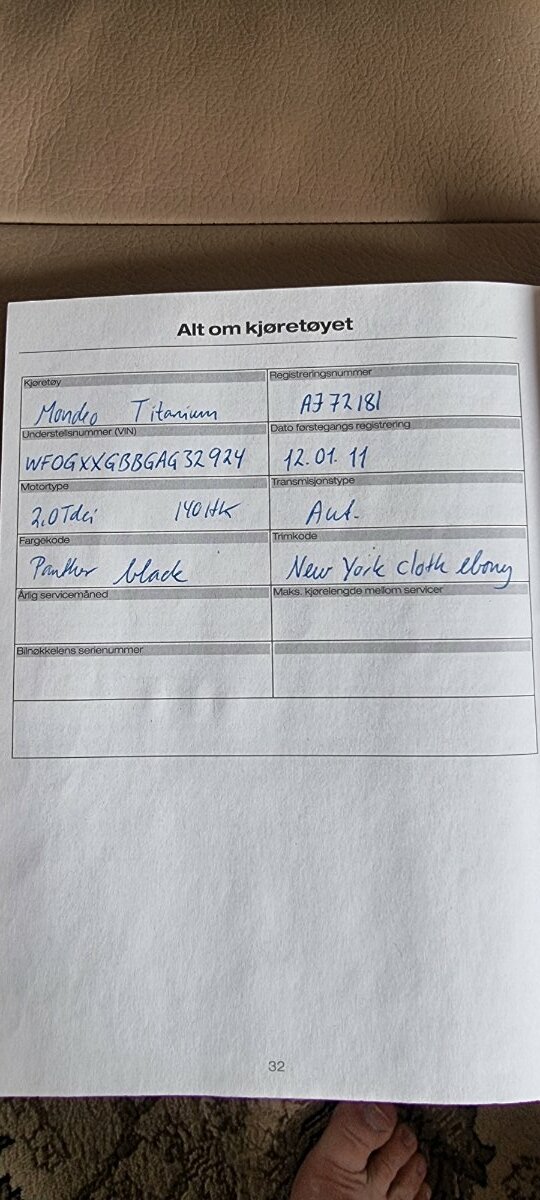 Alt om kjøretøyet
Kjøretøy
Mondeo Titanium
Registreringsnummer
AJ 72181
Understellsnummer (VIN)
WFOGXXGBBGAG32924
Dato førstegangs registrering
12.01.11
Motortype
2,0Tdci 140HK
Transmisjonstype
Aut.
Fargekode
Panther black
Trimkode
New York cloth ebony
Årlig servicemåned
Maks. kjørelengde mellom servicer
Bilnøkkelens serienummer
32